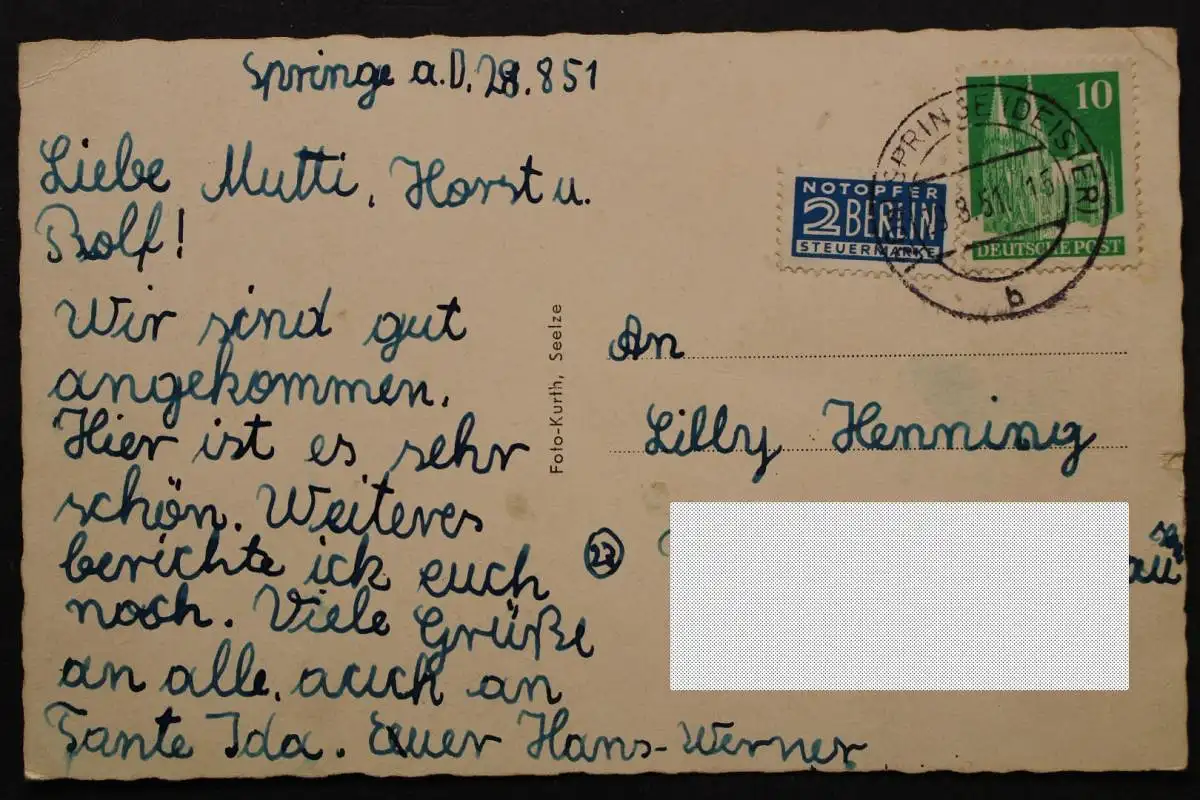 Springe a.D. 28.8 51
Liebe Mutti, Horst u.
Rolf!
Wir sind gut
angekommen.
Hier ist es sehr
schön. Weiteres
berichte ick euch
noch. Viele Grüße
an alle, auch an
Tante Ida. Euer Hans-Werner
Foto-Kurth, Seelze
NOTOPFER
2 BERLIN
STEUERMARKE
10
DEUTSCHE POST
(DEISTER)
8.51. 15
b
An
Lilly Henning